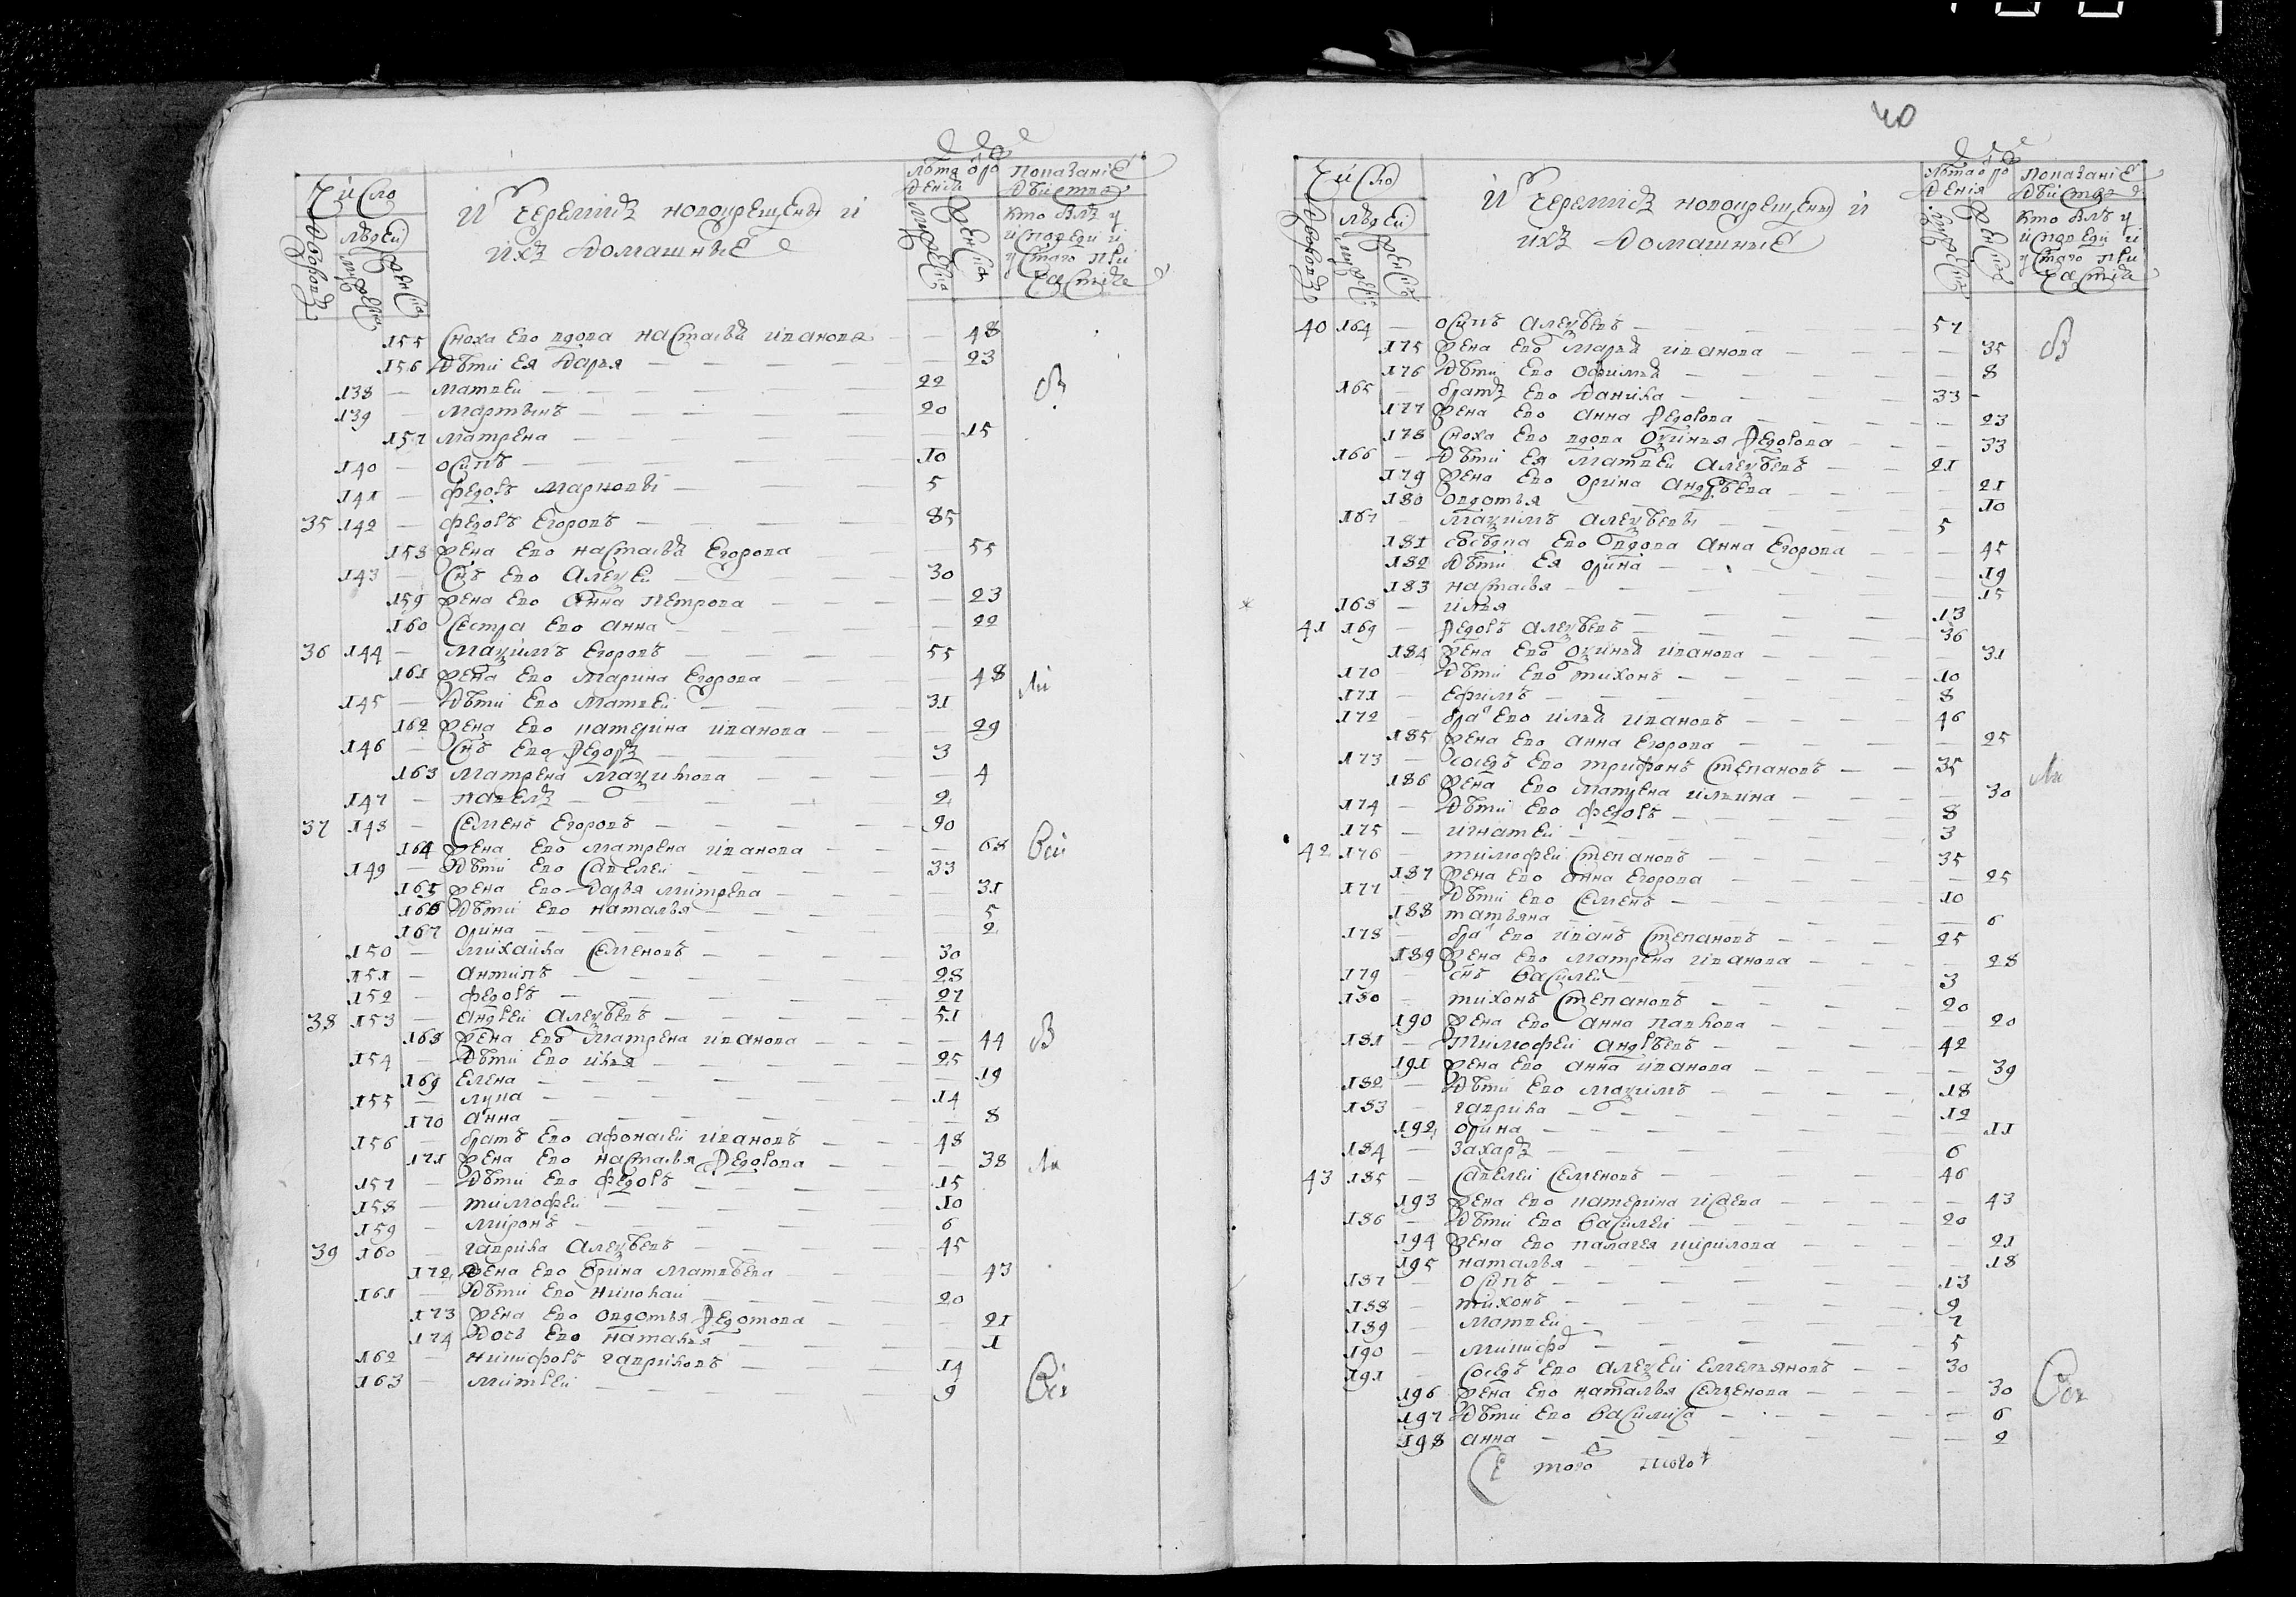 Число
дворовъ
людей
мужеска
женска
Ис черемисъ новокрещены и
ихъ домашные
Лѣта ѿ рож
дения
мужеска
женска
Показание
действа
кто былъ у
исповеди и
у стаго при
частия
155 Сноха ево вдова настасья иванова — 48
156 Дѣти ея дарья — 23
138 — матвей — 22
139 — мартынъ — 20
157 матрена — 15
140 — осипъ — 10
141 — федоръ марковы — 5
35 142 — федоръ Егоровъ — 85
158 жена ево настасья Егорова — 55
143 — Снъ ево Алеѯей — 30
159 жена ево анна петрова — 23
160 Сестра ево анна — 22
36 144 — маѯимъ Егоровъ — 55
161 жена ево марина Егорова — 48
145 — Дѣти ево матвей — 31
162 жена ево катерина иванова — 29
146 — Снъ ево федоръ — 3
163 матрена маѯимова — 4
147 — павелъ — 2
37 148 — Семенъ Егоровъ — 90
164 жена ево матрена иванова — 68
149 — Дѣти ево Савелей — 33
165 жена ево дарья митрева — 31
166 Дѣти ево наталья — 5
167 орина — 2
150 — михаила Семеновъ — 30
151 — антипъ — 28
152 — федоръ — 27
38 153 — андрей Алеѯѣевъ — 51
168 жена ево матрена иванова — 44
154 — Дѣти ево илья — 25
169 Елена — 19
155 — лука — 14
170 анна — 8
156 — братъ ево афонасей ивановъ — 48
171 жена ево настасья федорова — 38
157 — Дѣти ево федоръ — 15
158 — тимофей — 10
159 — миронъ — 6
39 160 — гаврила Алеѯѣевъ — 45
172 жена ево орина матвѣева — 43
161 — Дѣти ево николай — 20
173 жена ево овдотья федотова — 21
174 дочь ево наталья — 1
162 — никифоръ гавриловъ — 14
163 — митрей — 9
40
Число
дворовъ
людей
мужеска
женска
Ис черемисъ новокрещены и
ихъ домашные
Лѣта ѿ рож
дения
мужеска
женска
Показание
действа
кто былъ у
исповеди и
у стаго при
частия
40 164 — осипъ алеѯѣевъ — 57
175 жена ево марья иванова — 35
176 Дѣти ево офимья — 8
165 братъ ево данила — 33
177 жена ево анна федорова — 23
178 Сноха ево вдова оѯинья федорова — 33
166 — Дѣти ея матвей алеѯѣевъ — 21
179 жена ево орина андрѣева — 21
180 овдотья — 10
167 — маѯимъ алеѯѣевы — 5
181 сосѣдка ево вдова анна Егорова — 45
182 Дѣти ея орина — 19
183 настасья — 15
168 — илья — 13
41 169 — федоръ алеѯѣевъ — 36
184 жена ево оѯинья иванова — 31
170 Дѣти ево тихонъ — 10
171 — Ефимъ — 8
172 — бра ево илья ивановъ — 46
185 жена ево анна Егорова — 25
173 — сосѣдъ ево трифонъ Степановъ — 35
186 жена ево матрена ильина — 30
174 — Дѣти ево федоръ — 8
175 — игнатей — 3
42 176 — тимофей Степановъ — 35
187 жена ево анна Егорова — 25
177 — Дѣти ево Семенъ — 10
188 татьяна — 6
178 — бра ево иванъ Степановъ — 25
189 жена ево матрена иванова — 28
179 — снъ василей — 3
180 — тихонъ Степановъ — 20
190 жена ево анна павлова — 20
181 — тимофей андрѣевъ — 42
191 жена ево анна иванова — 39
182 — Дѣти ево маѯимъ — 18
183 — гаврила — 12
192 орина — 11
184 — захаръ — 6
43 185 — Савелей Семеновъ — 46
193 жена ево катерина исаева — 43
186 — Дѣти ево василей — 20
194 жена ево палагея кирилова — 21
195 наталья — 18
187 — осипъ — 13
188 — тихонъ — 9
189 — матвей — 7
190 — никифо — 5
191 — Сосѣдъ ево алеѯей емельяновъ — 30
196 жена ево наталья Семенова — 30
197 Дѣти ево василиса — 6
198 анна — 2